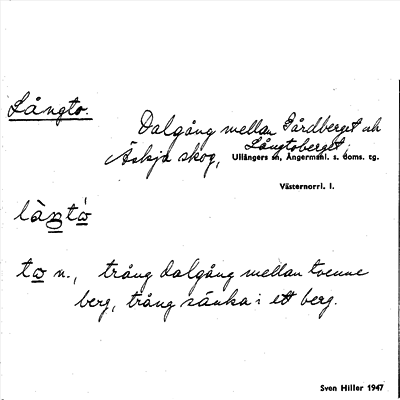 Långto.
Dalgång mellan Gårdberget och
Långtoberget,
Äskja skog, Ullångers sn, Ångermanl. s. doms. tg.
Västernorrl. l.
làŋtó
to n., trång dalgång mellan tvenne
berg, trång sänka i ett berg.
Sven Hiller 1947